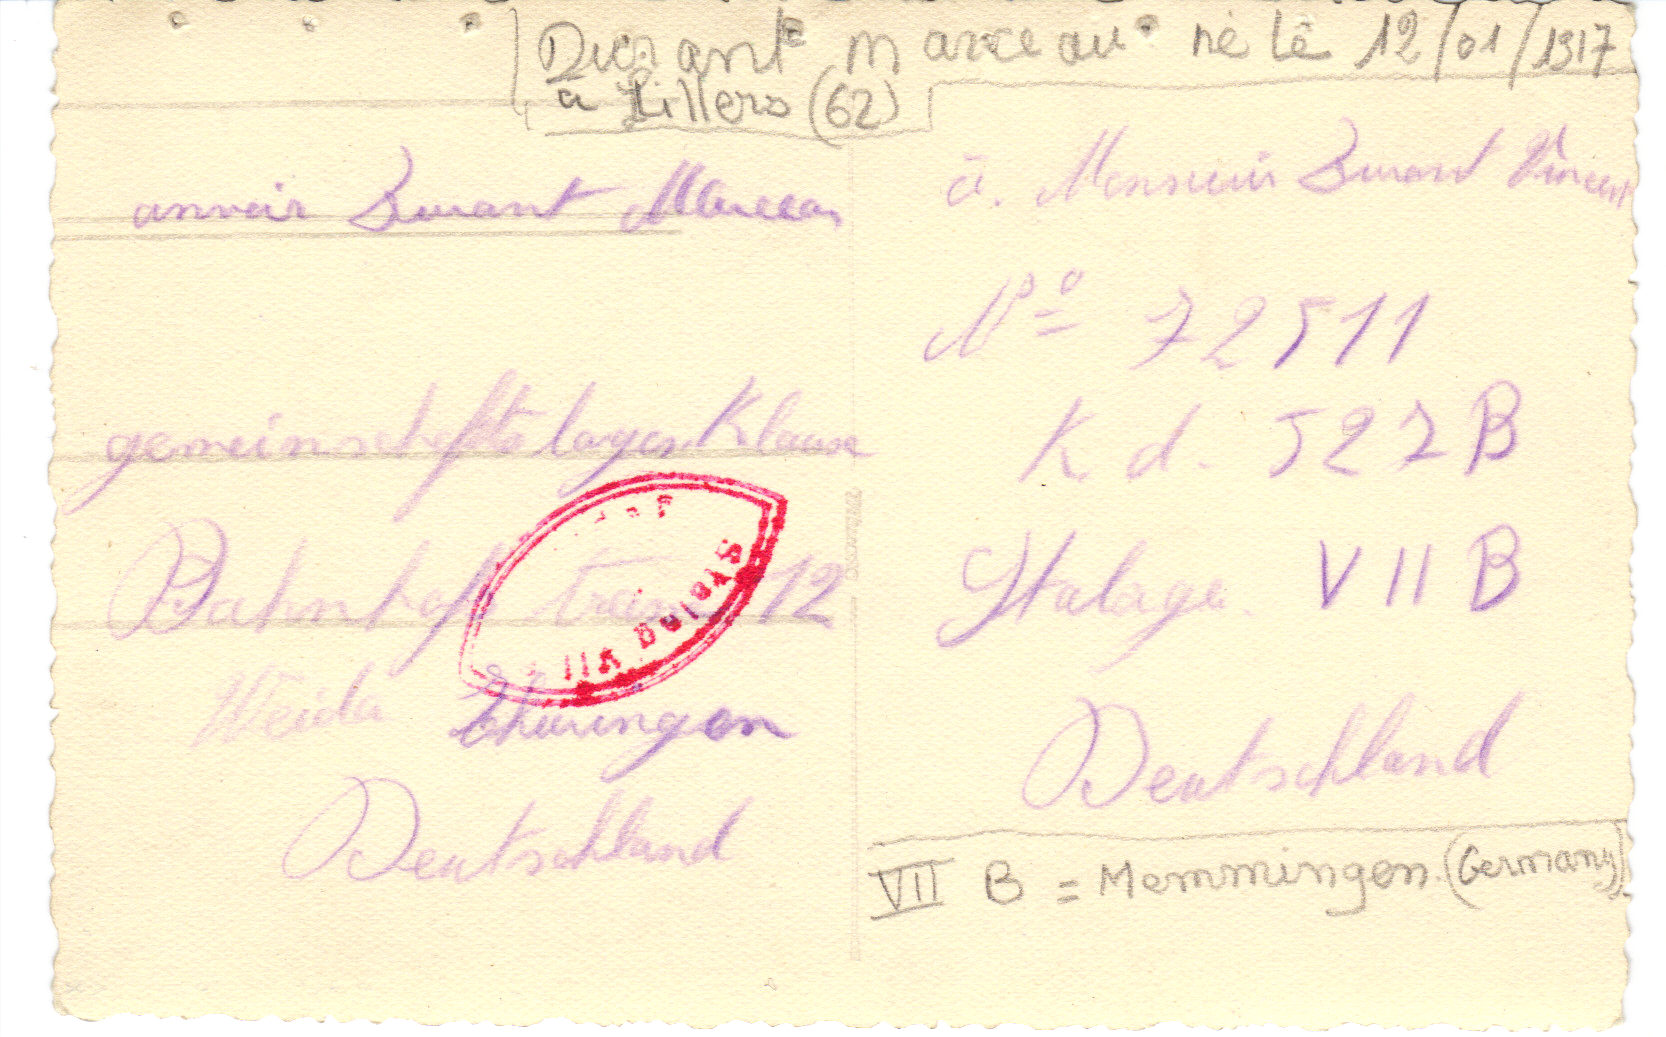 Durant Marceau né le 12/01/1917
à Lillers (62)
anvoir Durant Marceau
gemeinschefts lager Klause
Bahnhofs trass 12
Weida Thuringen
Deutschland
à. Monsieur Durant Vincent
N° 72511
K d. 527 B
Stalage. VII B
Deutschland
VII B = Memmingen. (Germany)
Stalag VII